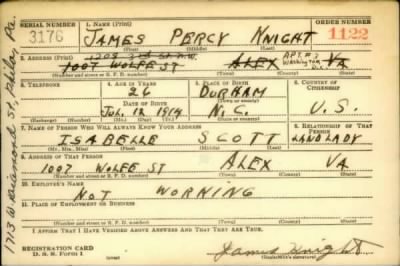 SERIAL NUMBER 1. NAME (Print) ORDER NUMBER
3176 JAMES PERCY KNIGHT 1122
(First) (Middle) (Last)
2. ADDRESS (Print) APT. #
1007 WOLFE ST ALEX VA
(Number and street or R. F. D. number) (Town) (County) (State)
3. TELEPHONE 4. AGE IN YEARS 5. PLACE OF BIRTH 6. COUNTRY OF CITIZENSHIP
26 DURHAM
DATE OF BIRTH (Town or county)
JUL. 18 1914 N.C. U.S.
(Exchange) (Number) (Mo.) (Day) (Yr.) (State or country)
7. NAME OF PERSON WHO WILL ALWAYS KNOW YOUR ADDRESS 8. RELATIONSHIP OF THAT PERSON
ISABELLE SCOTT LANDLADY
(Mr., Mrs., Miss) (First) (Middle) (Last)
9. ADDRESS OF THAT PERSON
1007 WOLFE ST ALEX VA
(Number and street or R. F. D. number) (Town) (County) (State)
10. EMPLOYER'S NAME
NOT WORKING
11. PLACE OF EMPLOYMENT OR BUSINESS
(Number and street or R. F. D. number) (Town) (County) (State)
I AFFIRM THAT I HAVE VERIFIED ABOVE ANSWERS AND THAT THEY ARE TRUE.
REGISTRATION CARD
D. S. S. FORM 1 James Knight
(Registrant's signature)
1713 W St, Phila, Pa